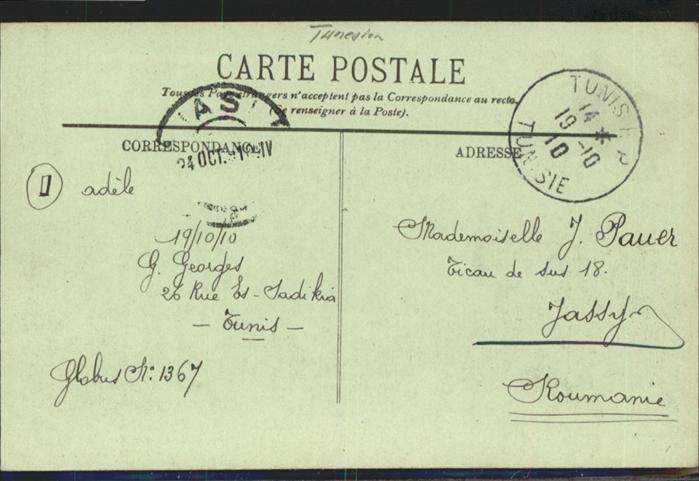 Tunesien
CARTE POSTALE
Tous les Pays étrangers n'acceptent pas la Correspondance au recto
(Se renseigner à la Poste).
CORRESPONDANCE
ADRESSE
IASI
24 OCT.
TUNIS R P
14 *
19 -10
10
TUNISIE
adèle
19/10/10
G. Georges
26 Rue Es-Sadikia
- Tunis -
Globus No: 1367
Mademoiselle J. Pauer
Ticau de sus 18.
Jassy
Roumanie